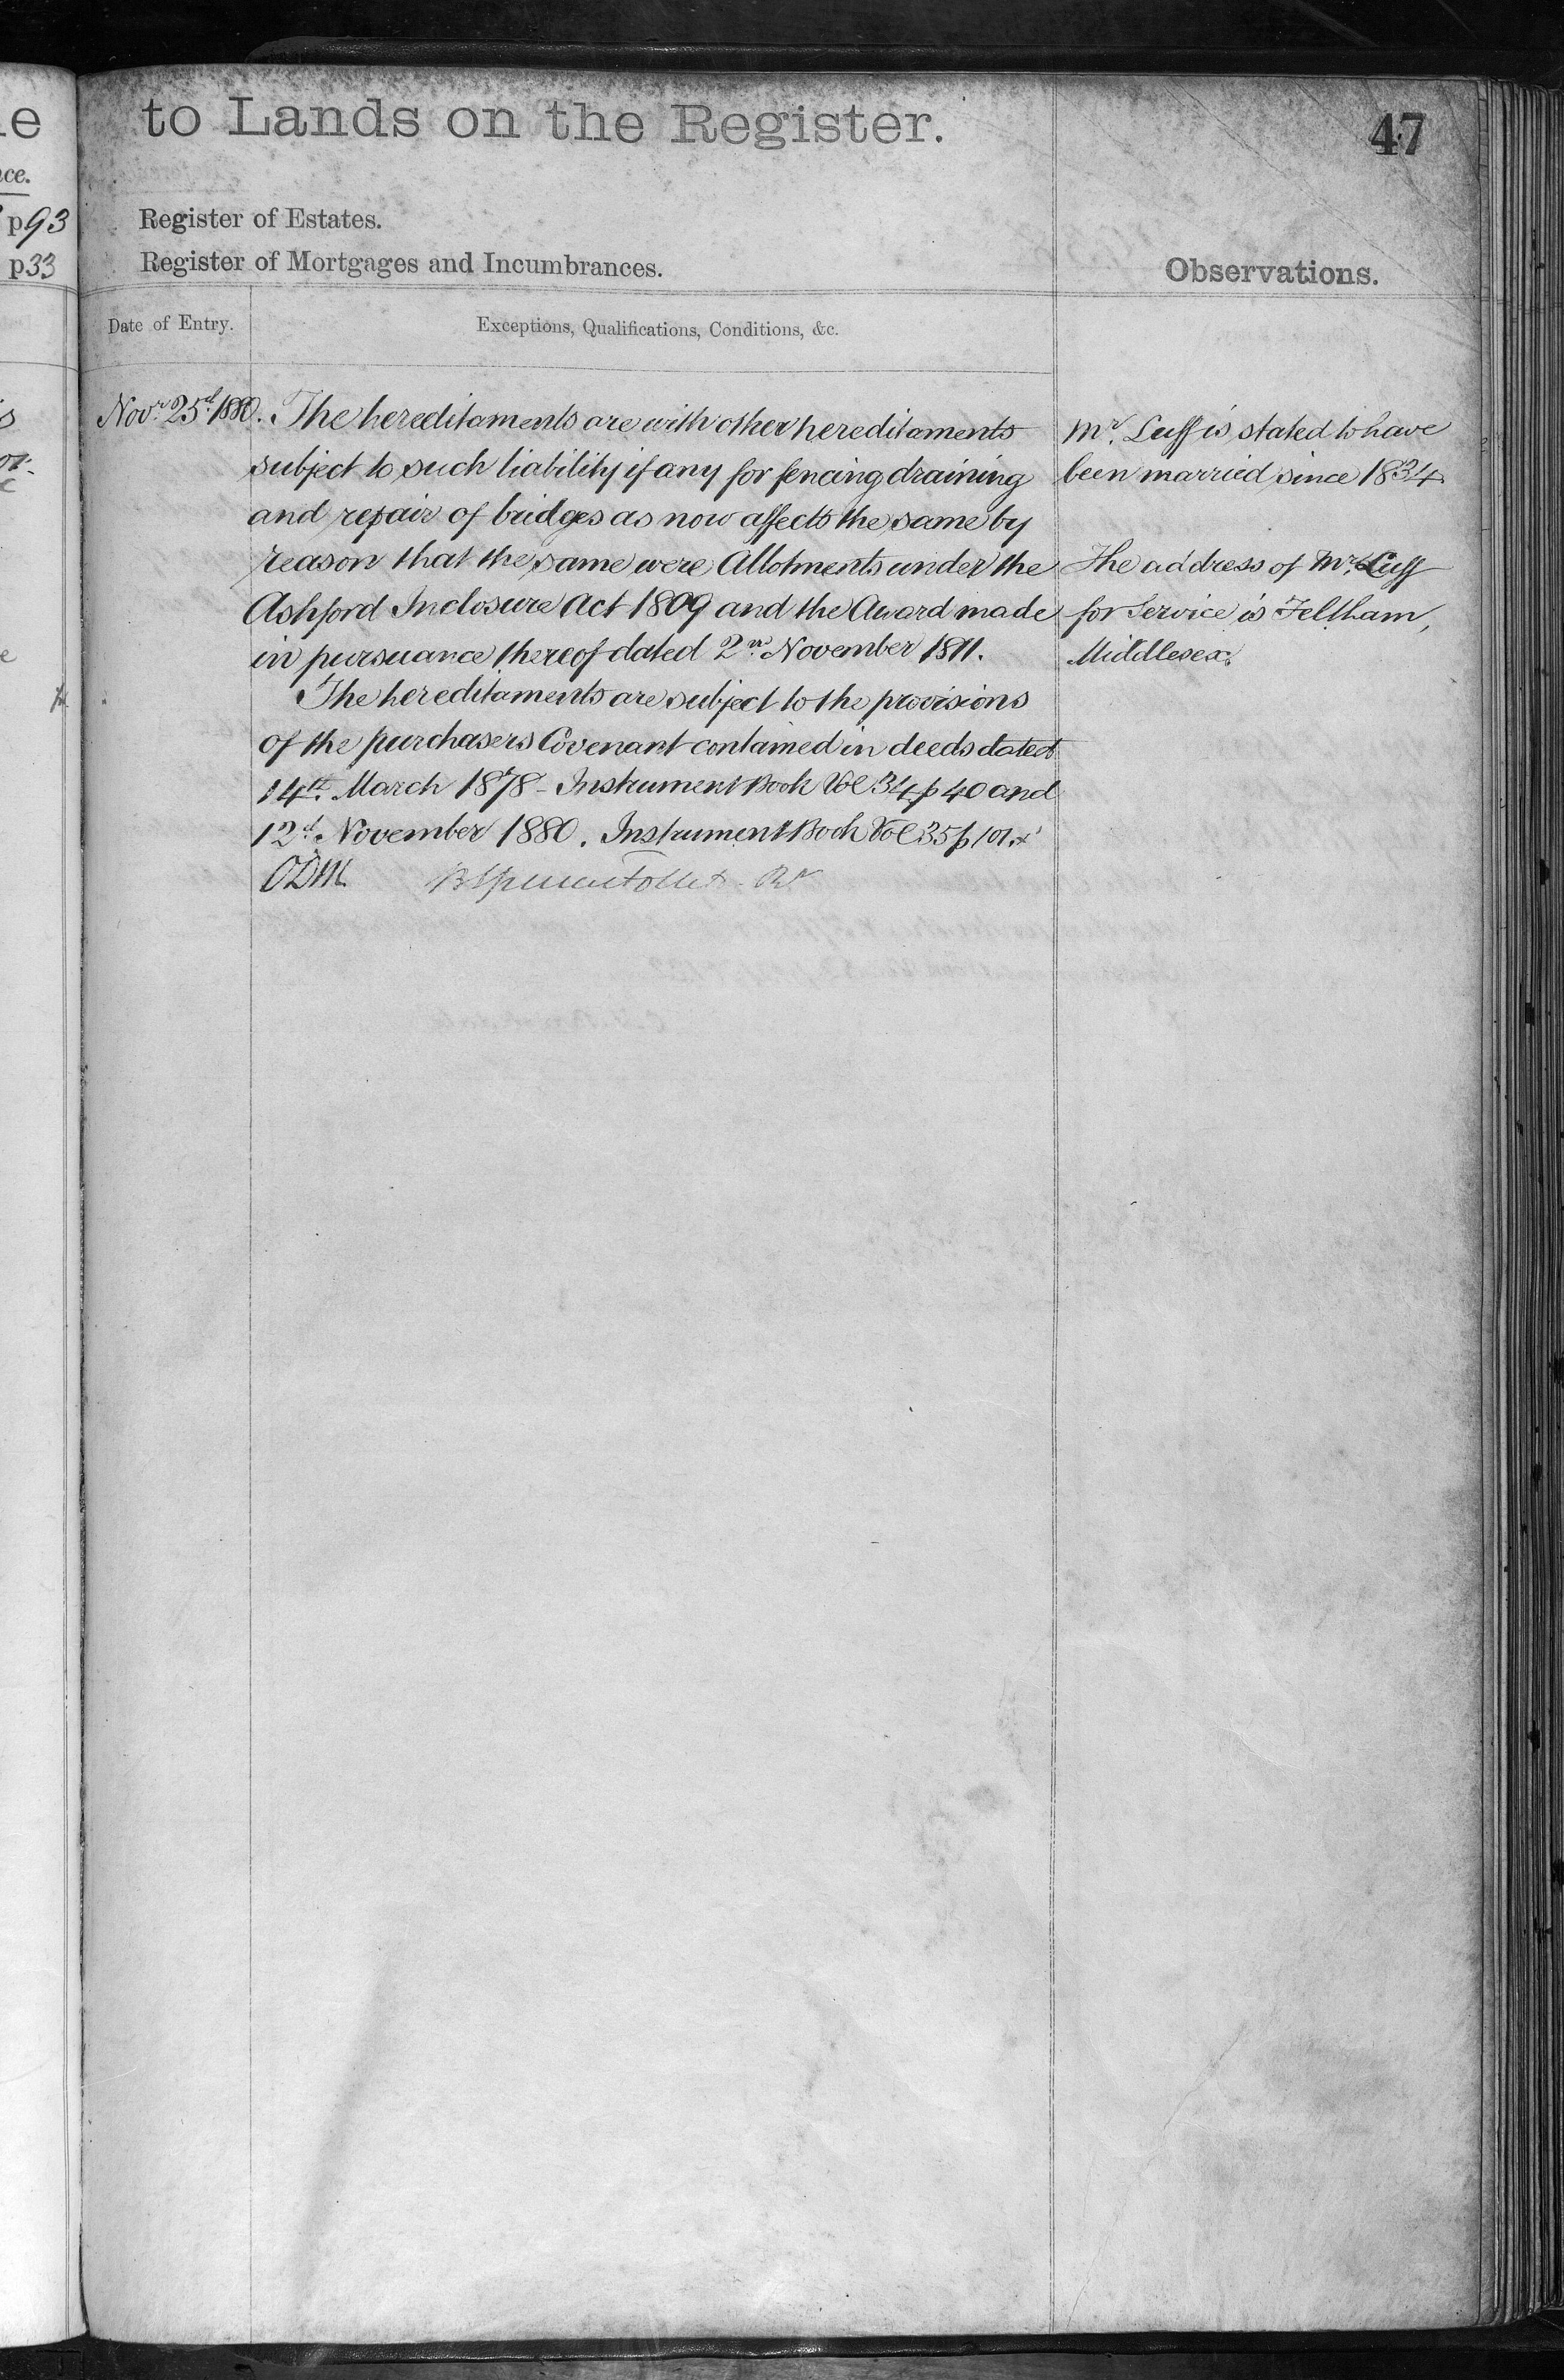 to Lands on the Register.
47
p93
p33
Register of Estates.
Register of Mortgages and Incumbrances.
Observations.
Date of Entry.
Exceptions, Qualifications, Conditions, &c.
Novr. 25d. 1880. The hereditaments are with other hereditaments
subject to such liability if any for fencing draining
and repair of bridges as now affects the same by
reason that the same were Allotments under the
Ashford Inclosure Act 1809 and the Award made
in pursuance thereof dated 2nd November 1811.
The hereditaments are subject to the provisions
of the purchasers Covenant contained in deeds dated
14th. March 1878 - Instrument Book Vol 34 p 40 and
12d. November 1880. Instrument Book Vol 35 p 101.
ODM
Mr. Luff is stated to have
been married since 1834
The address of Mr. Luff
for Service is Feltham,
Middlesex.